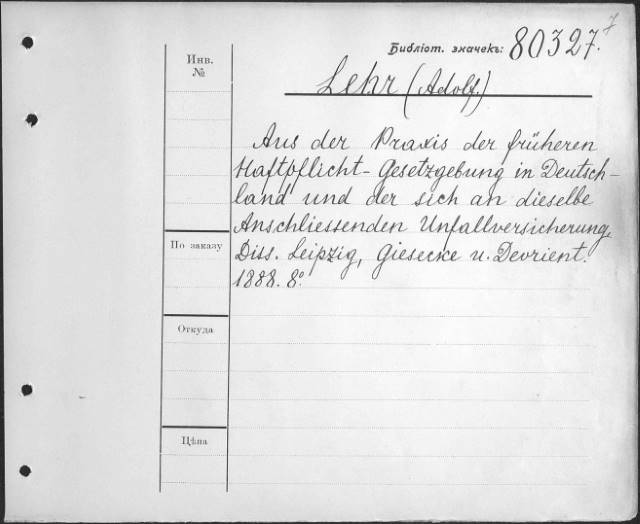 7
Библіот. значекъ: 80327.
Инв.
№
Lehr (Adolf.)
Aus der Praxis der früheren
Haftpflicht-Gesetzgebung in Deutsch-
land und der sich an dieselbe
Anschliessenden Unfallversicherung.
Diss. Leipzig, Giesecke u. Devrient.
1888. 8º.
По заказу
Откуда
Цѣна